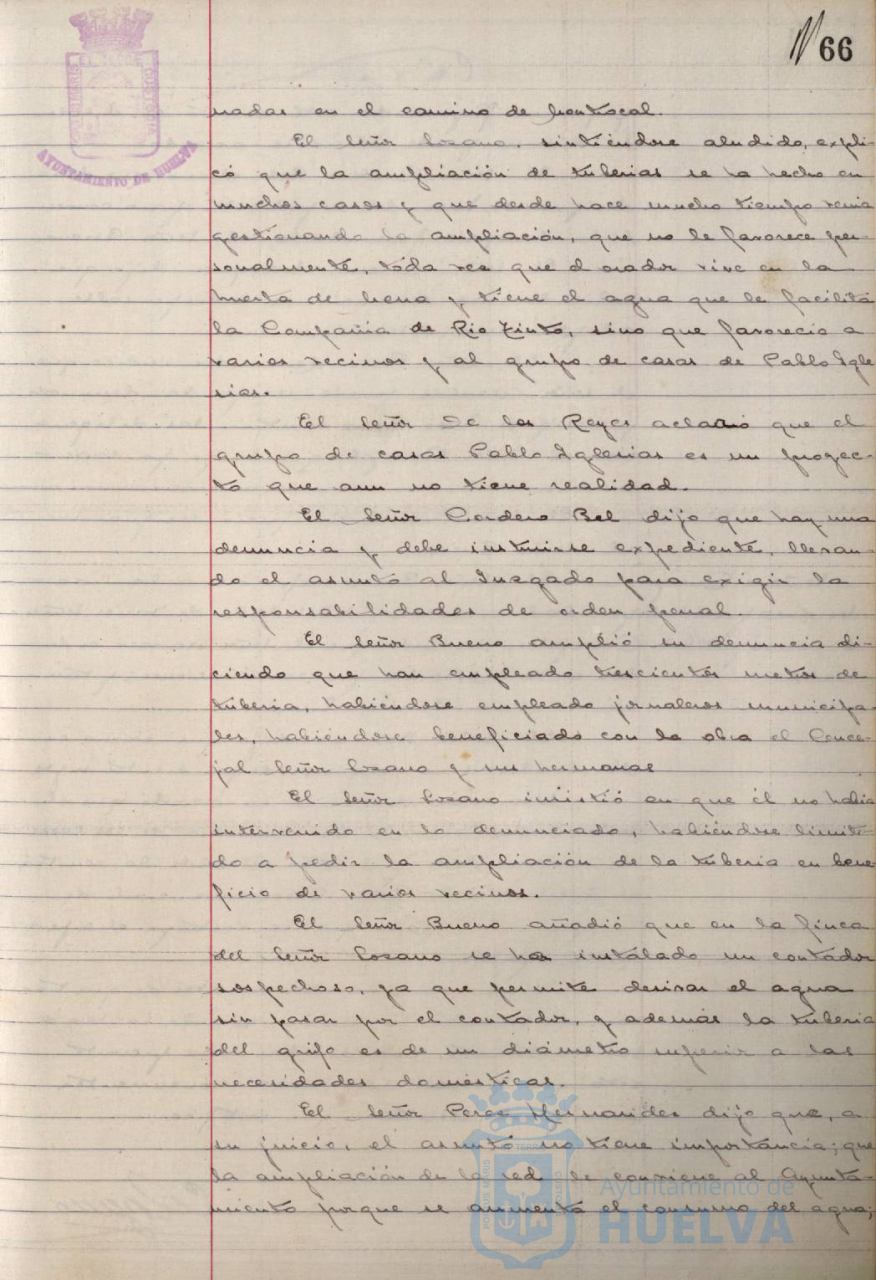 66
nadas en el camino de Montrocal.
El Señor Lozano, sintiéndose aludido, expli-
có que la ampliación de tuberias se ha hecho en
muchos casos y que desde hace mucho tiempo venia
gestionando la ampliación, que no le favorece per-
sonalmente, toda vez que el orador vive en la
Huerta de Mena y tiene el agua que le facilita
la Compañia de Rio Tinto, sino que favorecio a
varios vecinos y al grupo de casas de Pablo Igle
sias.
El Señor De los Reyes aclaró que el
grupo de casas Pablo Iglesias es un proyec-
to que aun no tiene realidad.
El Señor Cordero Bel dijo que hay una
denuncia y debe instruirse expediente, llevan-
do el asunto al Juzgado para exigir la
responsabilidades de orden penal.
El Señor Bueno amplió su denuncia di-
ciendo que han empleado trescientos metros de
tuberia, habiéndose empleado jornaleros municipa-
les, habiéndose beneficiado con la obra el Conce-
jal Señor Lozano y sus hermanas
El Señor Lozano insistió en que él no habia
intervenido en lo denunciado, habiéndose limita-
do a pedir la ampliación de la tuberia en bene
ficio de varios vecinos.
El Señor Bueno añadió que en la finca
del Señor Lozano se ha instalado un contador
sospechoso, ya que permite desviar el agua
sin pasar por el contador, y además la tuberia
del grifo es de un diámetro superior a las
necesidades domésticas.
El Señor Perez Hernandez dijo que, a
su juicio, el asunto no tiene importancia; que
la ampliación de la red le conviene al Ayunta-
miento porque se aumenta el consumo del agua;
AYUNTAMIENTO DE HUELVA
Ayuntamiento de
HUELVA